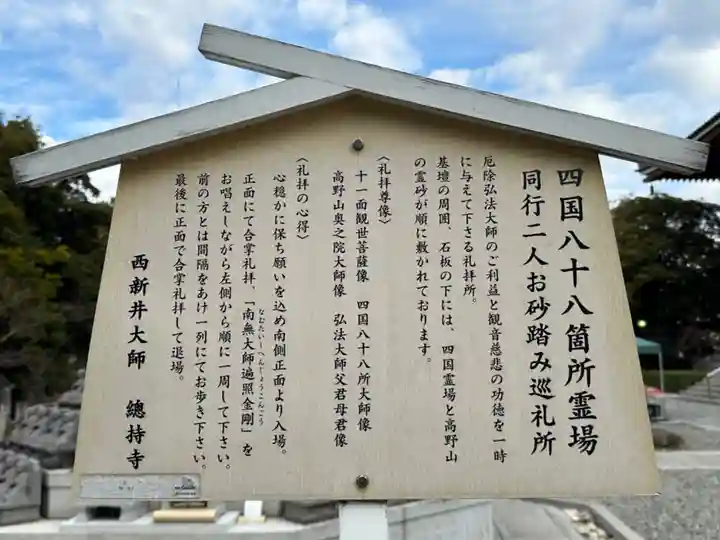 四国八十八箇所霊場
同行二人お砂踏み巡礼所
厄除弘法大師のご利益と観音慈悲の功徳を一時
に与えて下さる礼拝所。
基壇の周囲、石板の下には、四国霊場と高野山
の霊砂が順に敷かれております。
〈礼拝尊像〉
十一面観世菩薩像 四国八十八所大師像
高野山奥之院大師像 弘法大師父君母君像
〈礼拝の心得〉
心穏かに保ち願いを込め南側正面より入場。
正面にて合掌礼拝、「南無大師遍照金剛」を
なむたいしへんじょうこんごう
お唱えしながら左側から順に一周して下さい。
前の方とは間隔をあけ一列にてお歩き下さい。
最後に正面で合掌礼拝して退場。
西新井大師 總持寺